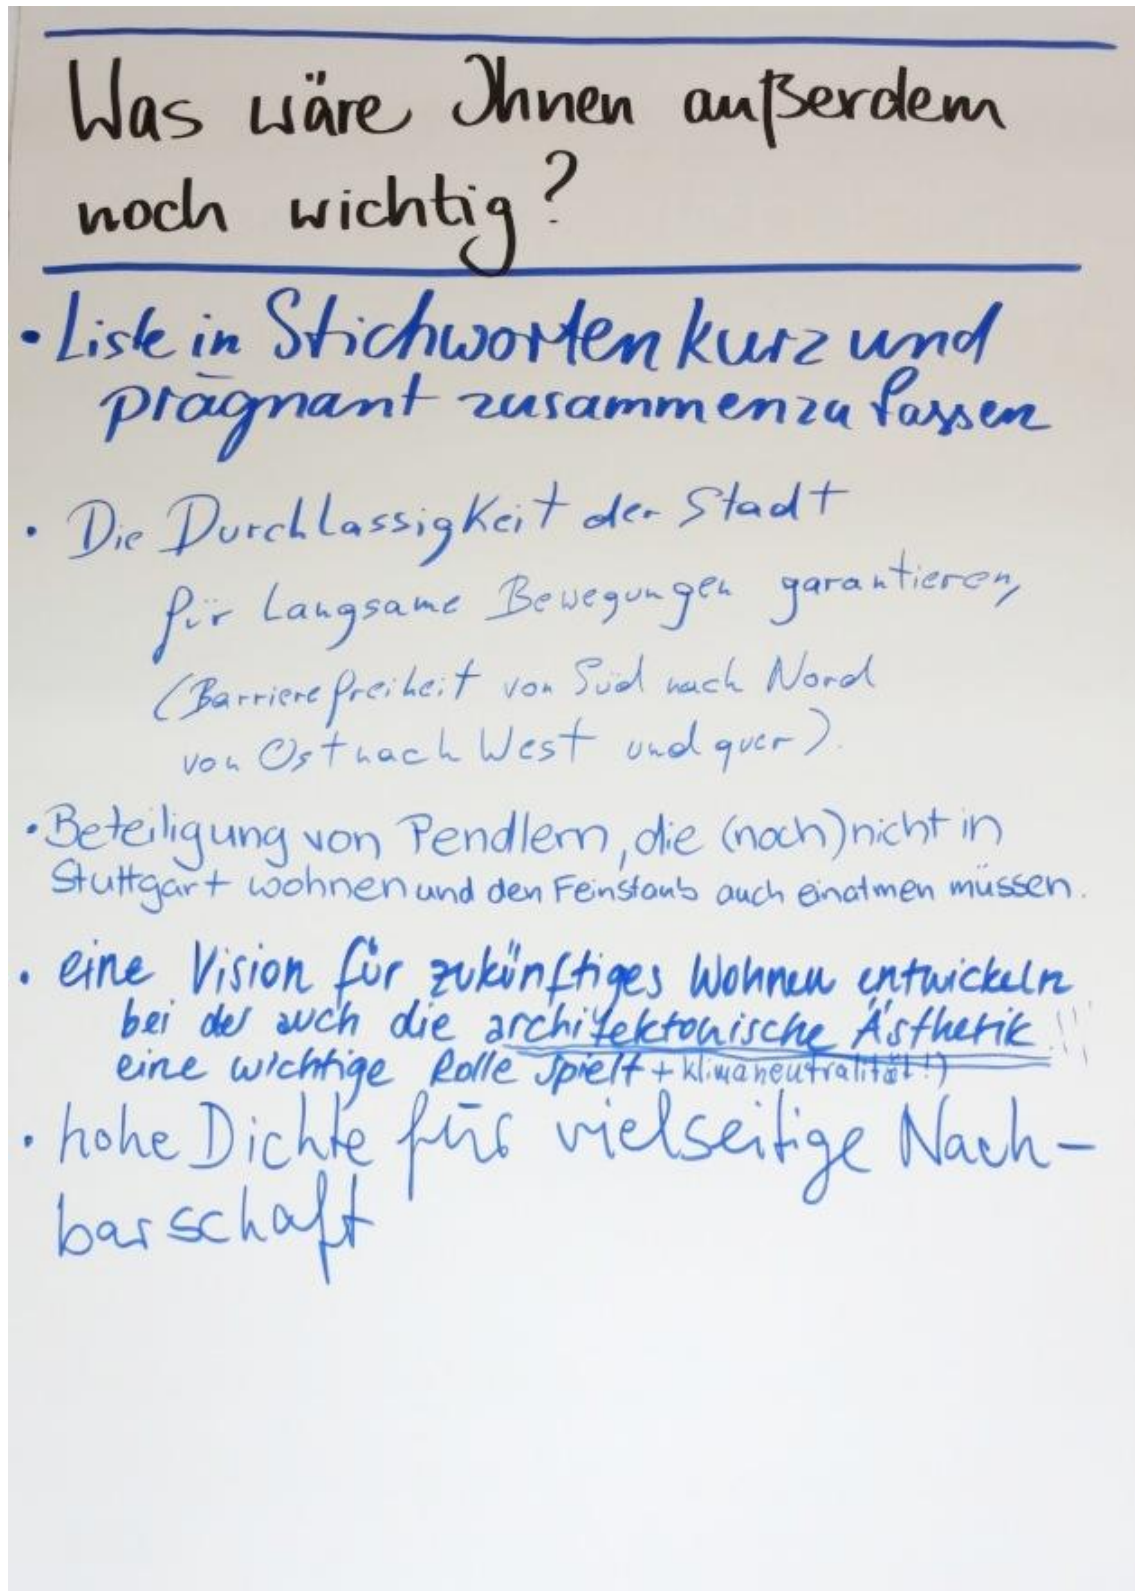 Was wäre Ihnen außerdem
noch wichtig?
• Liste in Stichworten kurz und
prägnant zusammenzufassen
• Die Durchlassigkeit der Stadt
für Langsame Bewegungen garantieren,
(Barrierefreiheit von Süd nach Nord
von Ost nach West und quer).
• Beteiligung von Pendlern, die (noch) nicht in
Stuttgart wohnen und den Feinstaub auch einatmen müssen.
• eine Vision für zukünftiges Wohnen entwickeln
bei der auch die architektonische Ästhetik !!!
eine wichtige Rolle spielt + klimaneutralität!)
• hohe Dichte für vielseitige Nach-
barschaft